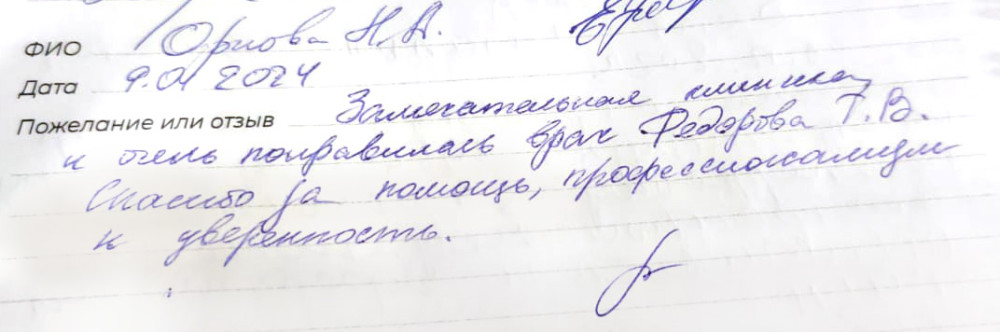 ФИО Орлова Н.А.
Дата 9.01 2024
Пожелание или отзыв Замечательная клиника,
и очень понравилась врач Федорова Т.В.
Спасибо за помощь, профессионализм
и уверенность.